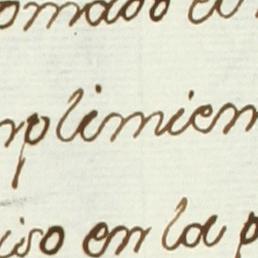 omado el
mplimien
iso en la p